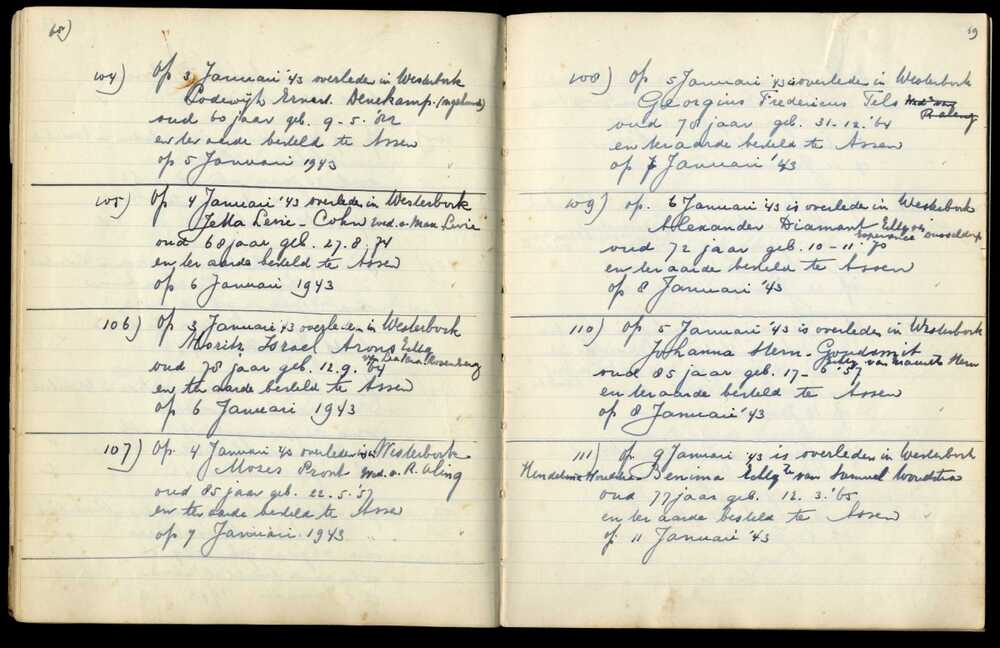 68)
104) Op 3 Januari '43 overleden in Westerbork
Lodewijk Ernest Denekamp. (ongehuwd)
oud 60 jaar geb. 9-5.'82
en ter aarde besteld te Assen
op 5 Januari 1943
105) Op 4 Januari '43 overleden in Westerbork
Jetta Levie-Cohn wed. v. Max Levie
oud 68 jaar geb. 27.8.'74
en ter aarde besteld te Assen
op 6 Januari 1943
106) Op 3 Januari '43 overleden in Westerbork
Moritz Israel Arons Echtg
van Rosenberg
oud 78 jaar geb. 12.9.'64
en ter aarde besteld te Assen
op 6 Januari 1943
107) Op 4 Januari '43 overleden in Westerbork
Moses Pront wed. v. R. Vling
oud 85 jaar geb. 22.5.'57
en ter aarde besteld te Assen
op 7 Januari 1943
69
108) Op 5 Januari '43 is overleden in Westerbork
Georgius Fredericus Tels
oud 78 jaar geb. 31-12.'64
en ter aarde besteld te Assen
op 7 Januari '43
109) op. 6 Januari '43 is overleden in Westerbork
Alexander Diamant Echtg. v.
Esperance Dusseldorp
oud 72 jaar geb. 10-11.'70
en ter aarde besteld te Assen
op 8 Januari '43
110) Op 5 Januari '43 is overleden in Westerbork
Johanna Stern-Goudsmit
Echtg. van Maurits Stern
oud 85 jaar geb. 17-6.'57
en ter aarde besteld te Assen
op 8 Januari '43
111) Op 9 Januari '43 is overleden in Westerbork
Benima Echtg te van Samuel Woudstra
oud 77 jaar geb. 12.3.'65
en ter aarde besteld te Assen
op 11 Januari '43